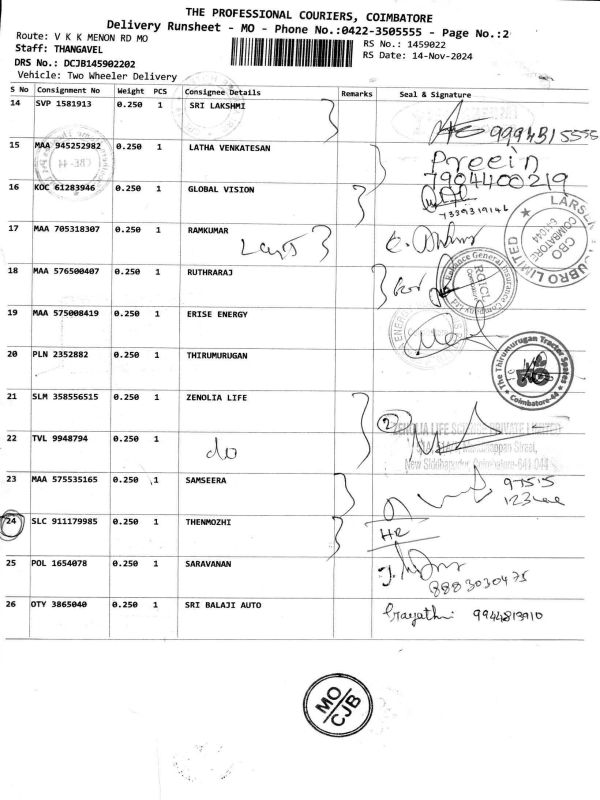 THE PROFESSIONAL COURIERS, COIMBATORE
Delivery Runsheet - MO - Phone No.:0422-3505555 - Page No.:2
Route: V K K MENON RD MO
RS No.: 1459022
Staff: THANGAVEL
RS Date: 14-Nov-2024
DRS No.: DCJB145902202
Vehicle: Two Wheeler Delivery
S No Consignment No Weight PCS Consignee Details Remarks Seal & Signature
14 SVP 1581913 0.250 1 SRI LAKSHMI
9994315555
15 MAA 945252982 0.250 1 LATHA VENKATESAN
7904400219
16 KOC 61283946 0.250 1 GLOBAL VISION
7339319146
LARSEN & TOUBRO LIMITED
CBO
COIMBATORE
641044
17 MAA 705318307 0.250 1 RAMKUMAR
18 MAA 576500407 0.250 1 RUTHRARAJ
Reliance General Insurance
RGICL
19 MAA 575008419 0.250 1 ERISE ENERGY
20 PLN 2352882 0.250 1 THIRUMURUGAN
The Thirumurugan Tractor Spares
Coimbatore-44
21 SLM 358556515 0.250 1 ZENOLIA LIFE
2
22 TVL 9948794 0.250 1
do
New Siddhapudur, Coimbatore-641 044
23 MAA 575535165 0.250 1 SAMSEERA
97515
24 SLC 911179985 0.250 1 THENMOZHI
HR
25 POL 1654078 0.250 1 SARAVANAN
8883030475
26 OTY 3865040 0.250 1 SRI BALAJI AUTO
Gayathri 9944813910
MO
CJB